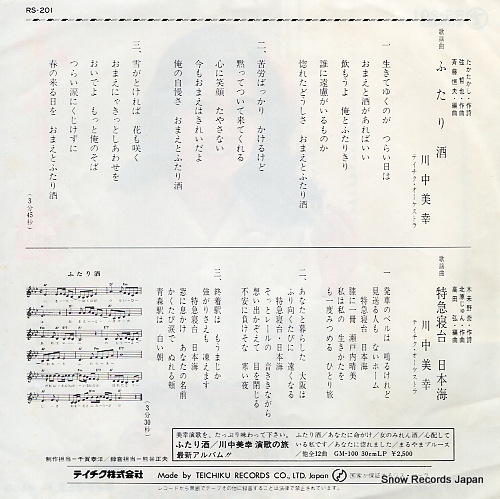 RS-201
歌謡曲
ふたり酒
たかたかし・作詩
弦哲也・作曲
斉藤恒夫・編曲
川中美幸
テイチク・オーケストラ
一、生きてゆくのが つらい日は
おまえと酒があればいい
飲もうよ 俺とふたりきり
誰に遠慮がいるものか
惚れたどうしさ おまえとふたり酒
二、苦労ばっかり かけるけど
黙ってついて来てくれる
心に笑顔 たやさない
今もおまえはきれいだよ
俺の自慢さ おまえとふたり酒
三、雪がとければ 花も咲く
おまえにゃきっとしあわせを
おいでよ もっと俺のそば
つらい涙にくじけずに
春の来る日を おまえとふたり酒
(3分45秒)
歌謡曲
特急寝台 日本海
高田弘・編曲
川中美幸
テイチク・オーケストラ
一、発車のベルは 鳴るけれど
見送る人も ないホーム
特急寝台 日本海
膝に一冊 瀬戸内晴美
私は私の 生きかたを
も一度みつめる ひとり旅
二、あなたと暮らした 大阪は
ふり向くたびに 遠くなる
特急寝台 日本海
そっとレールの 音ききながら
想い出かぞえて 目を閉じる
不安に負けそな 寒い夜
三、終着駅は もうまじか
強がりさえも 凍えます
特急寝台 日本海
窓に息かけ あなたの名前
かくたび涙で ぬれる頬
青森駅は 白い朝
(3分30秒)
ふたり酒
美幸演歌を、たっぷり味わって下さい。
ふたり酒/川中美幸 演歌の旅
最新アルバム!!
ふたり酒/あなたに命がけ/女のみれん酒/心配している私です/あなたに惚れました/まるやまブルース
/他全12曲 GM-100 30cmLP ¥2,500
制作担当=千賀泰洋/録音担当=熊谷正夫
テイチク株式会社
Made by TEICHIKU RECORDS CO., LTD. Japan
レコードから無断でテープその他に録音することは法律で禁じられています。
Snow Records Japan